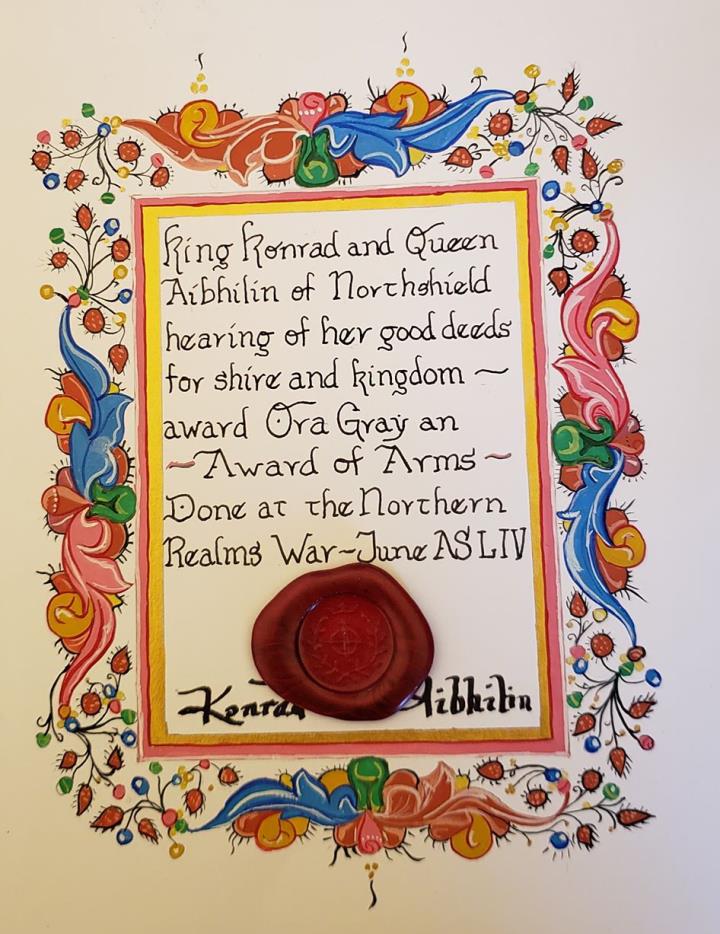 King Konrad and Queen
Aibhilin of Northshield
hearing of her good deeds
for shire and kingdom ~
award Ora Gray an
~ Award of Arms ~
Done at the Northern
Realms War ~ June AS LIV
Konrad Aibhilin